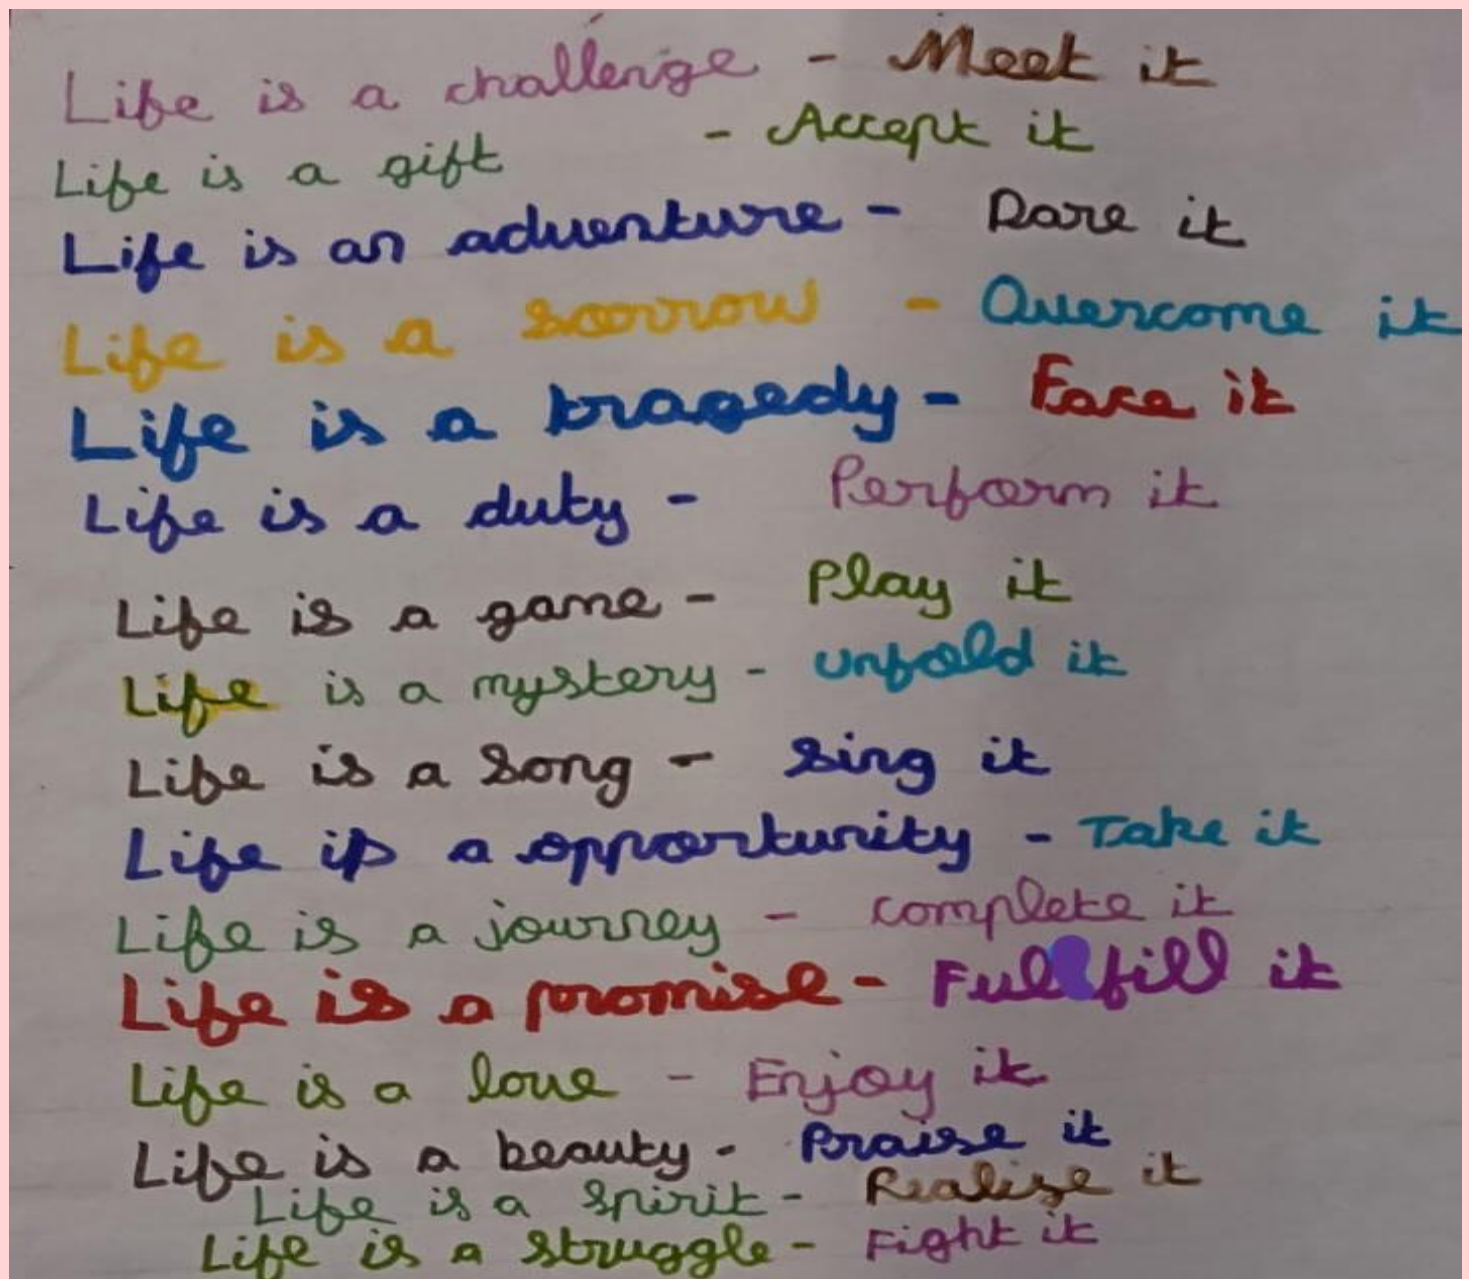 Life is a challenge - Meet it
Life is a gift - Accept it
Life is an adventure - Dare it
Life is a sorrow - Overcome it
Life is a tragedy - Face it
Life is a duty - Perform it
Life is a game - Play it
Life is a mystery - unfold it
Life is a song - Sing it
Life is a opportunity - Take it
Life is a journey - complete it
Life is a promise - Fulfill it
Life is a love - Enjoy it
Life is a beauty - Praise it
Life is a spirit - Realize it
Life is a struggle - Fight it